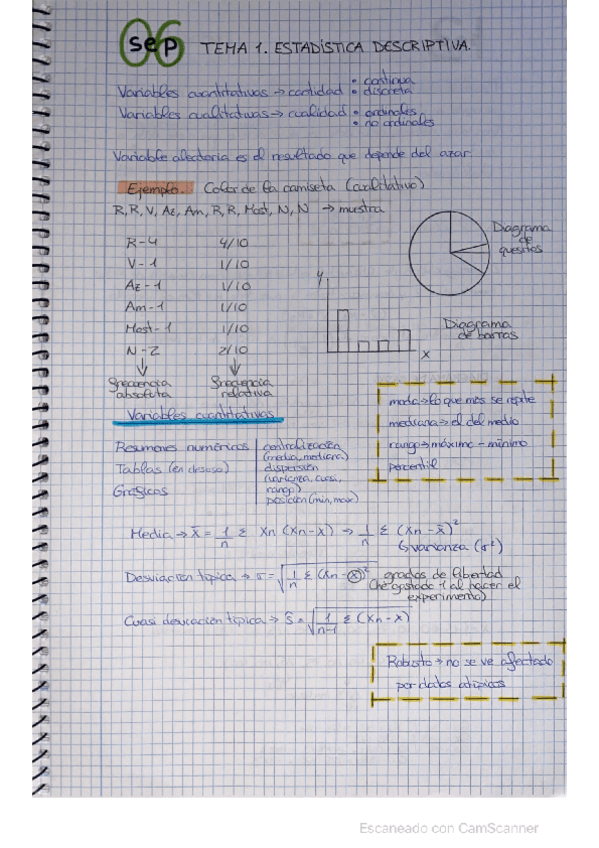 06 sep TEMA 1. ESTADÍSTICA DESCRIPTIVA.
Variables cuantitativas → cantidad • continua
• discreta
Variables cualitativas → cualidad • ordinales
• no ordinales
Variable aleatoria es el resultado que depende del azar.
Ejemplo. Color de la camiseta (cualitativo)
R, R, V, Az, Am, R, R, Most, N, N → muestra
R - 4 4/10
V - 1 1/10
Az - 1 1/10
Am - 1 1/10
Most - 1 1/10
N - 2 2/10
frecuencia absoluta
frecuencia relativa
Diagrama
de
quesitos
y
x
Diagrama
de barras
moda → lo que más se repite
mediana → el del medio
rango → máximo - mínimo
percentil
Variables cuantitativas
Resumenes numéricos
Tablas (en desuso)
Gráficos
centralización
(media, mediana)
dispersión
(varianza, cuasi,
rango)
posición (min, max)
Media → x̄ = 1/n Σ Xn (Xn - x) → 1/n Σ (Xn - x̄)²
↳ varianza (σ²)
Desviación típica → σ = √1/n Σ (Xn - x̄)² grados de libertad
(he gastado 1 al hacer el
experimento)
Cuasi desviación típica → Ŝ = √1/n-1 Σ (Xn - x)
Robusto → no se ve afectado
por datos atípicos
Escaneado con CamScanner